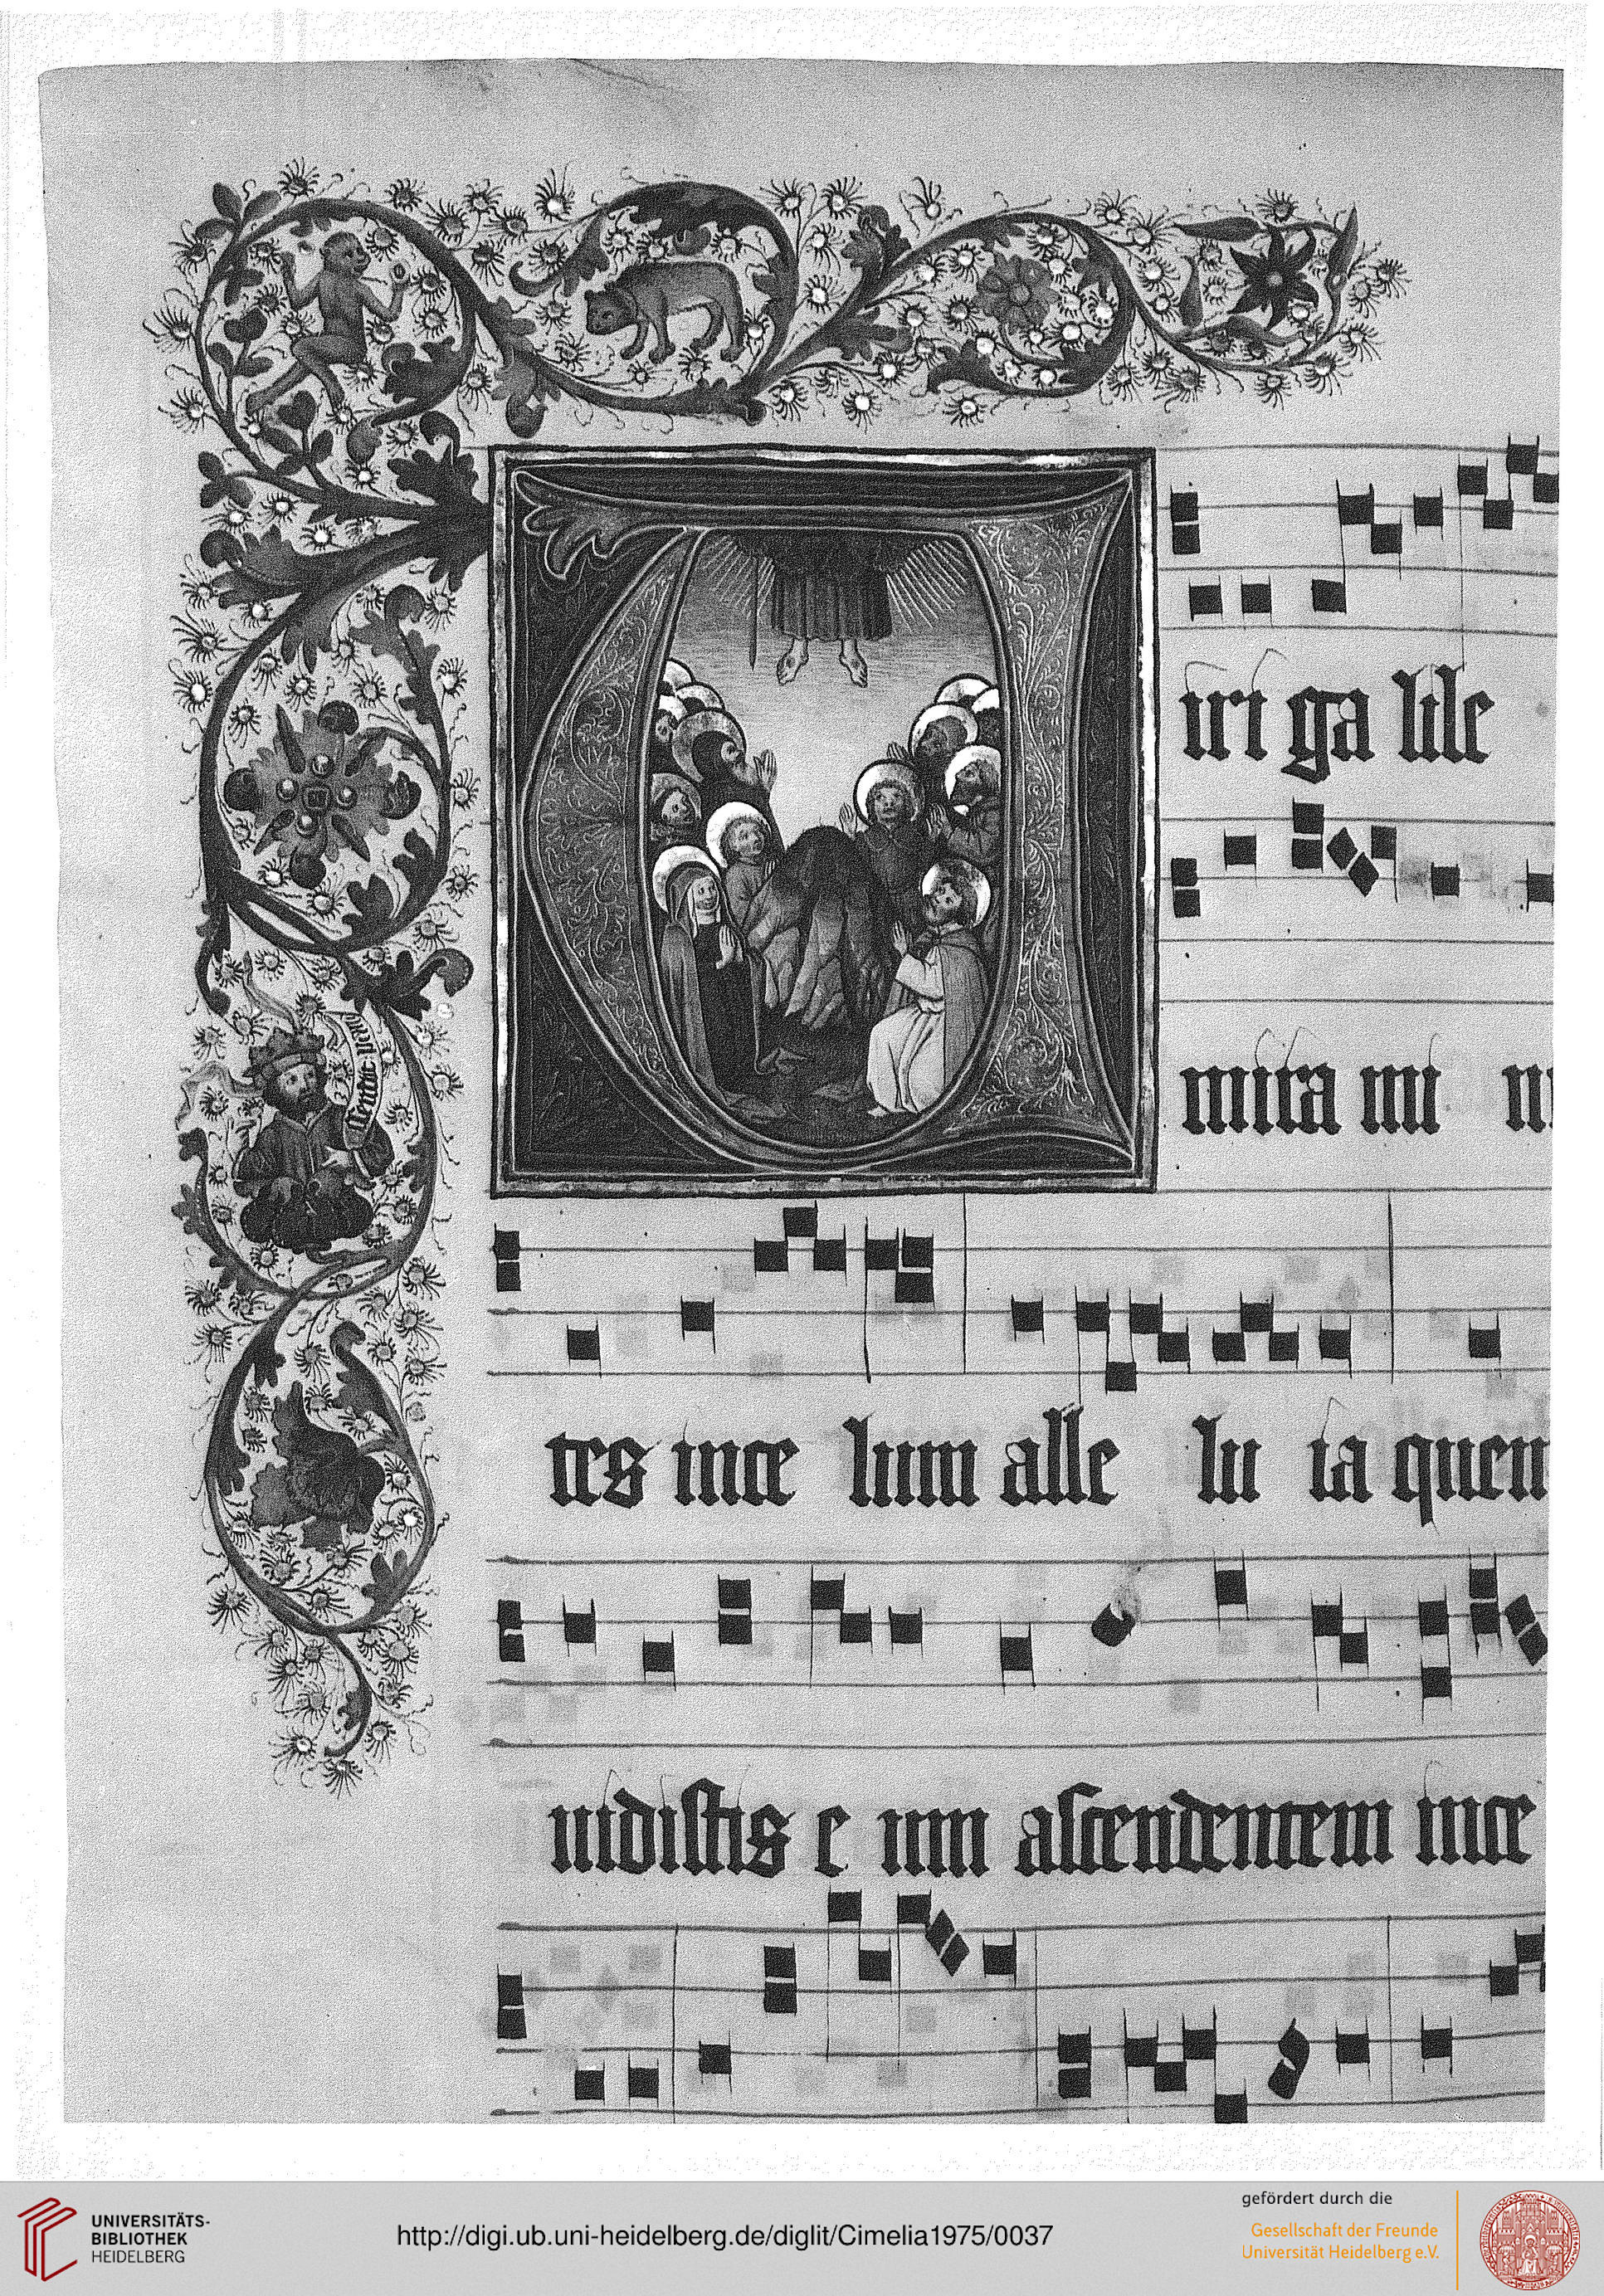 iri ga lile
mira mi ni
tes ince lum alle lu ia quem
uidistis e um ascendentem ince
UNIVERSITÄTS-
BIBLIOTHEK
HEIDELBERG
http://digi.ub.uni-heidelberg.de/diglit/Cimelia1975/0037
gefördert durch die
Gesellschaft der Freunde
Universität Heidelberg e.V.